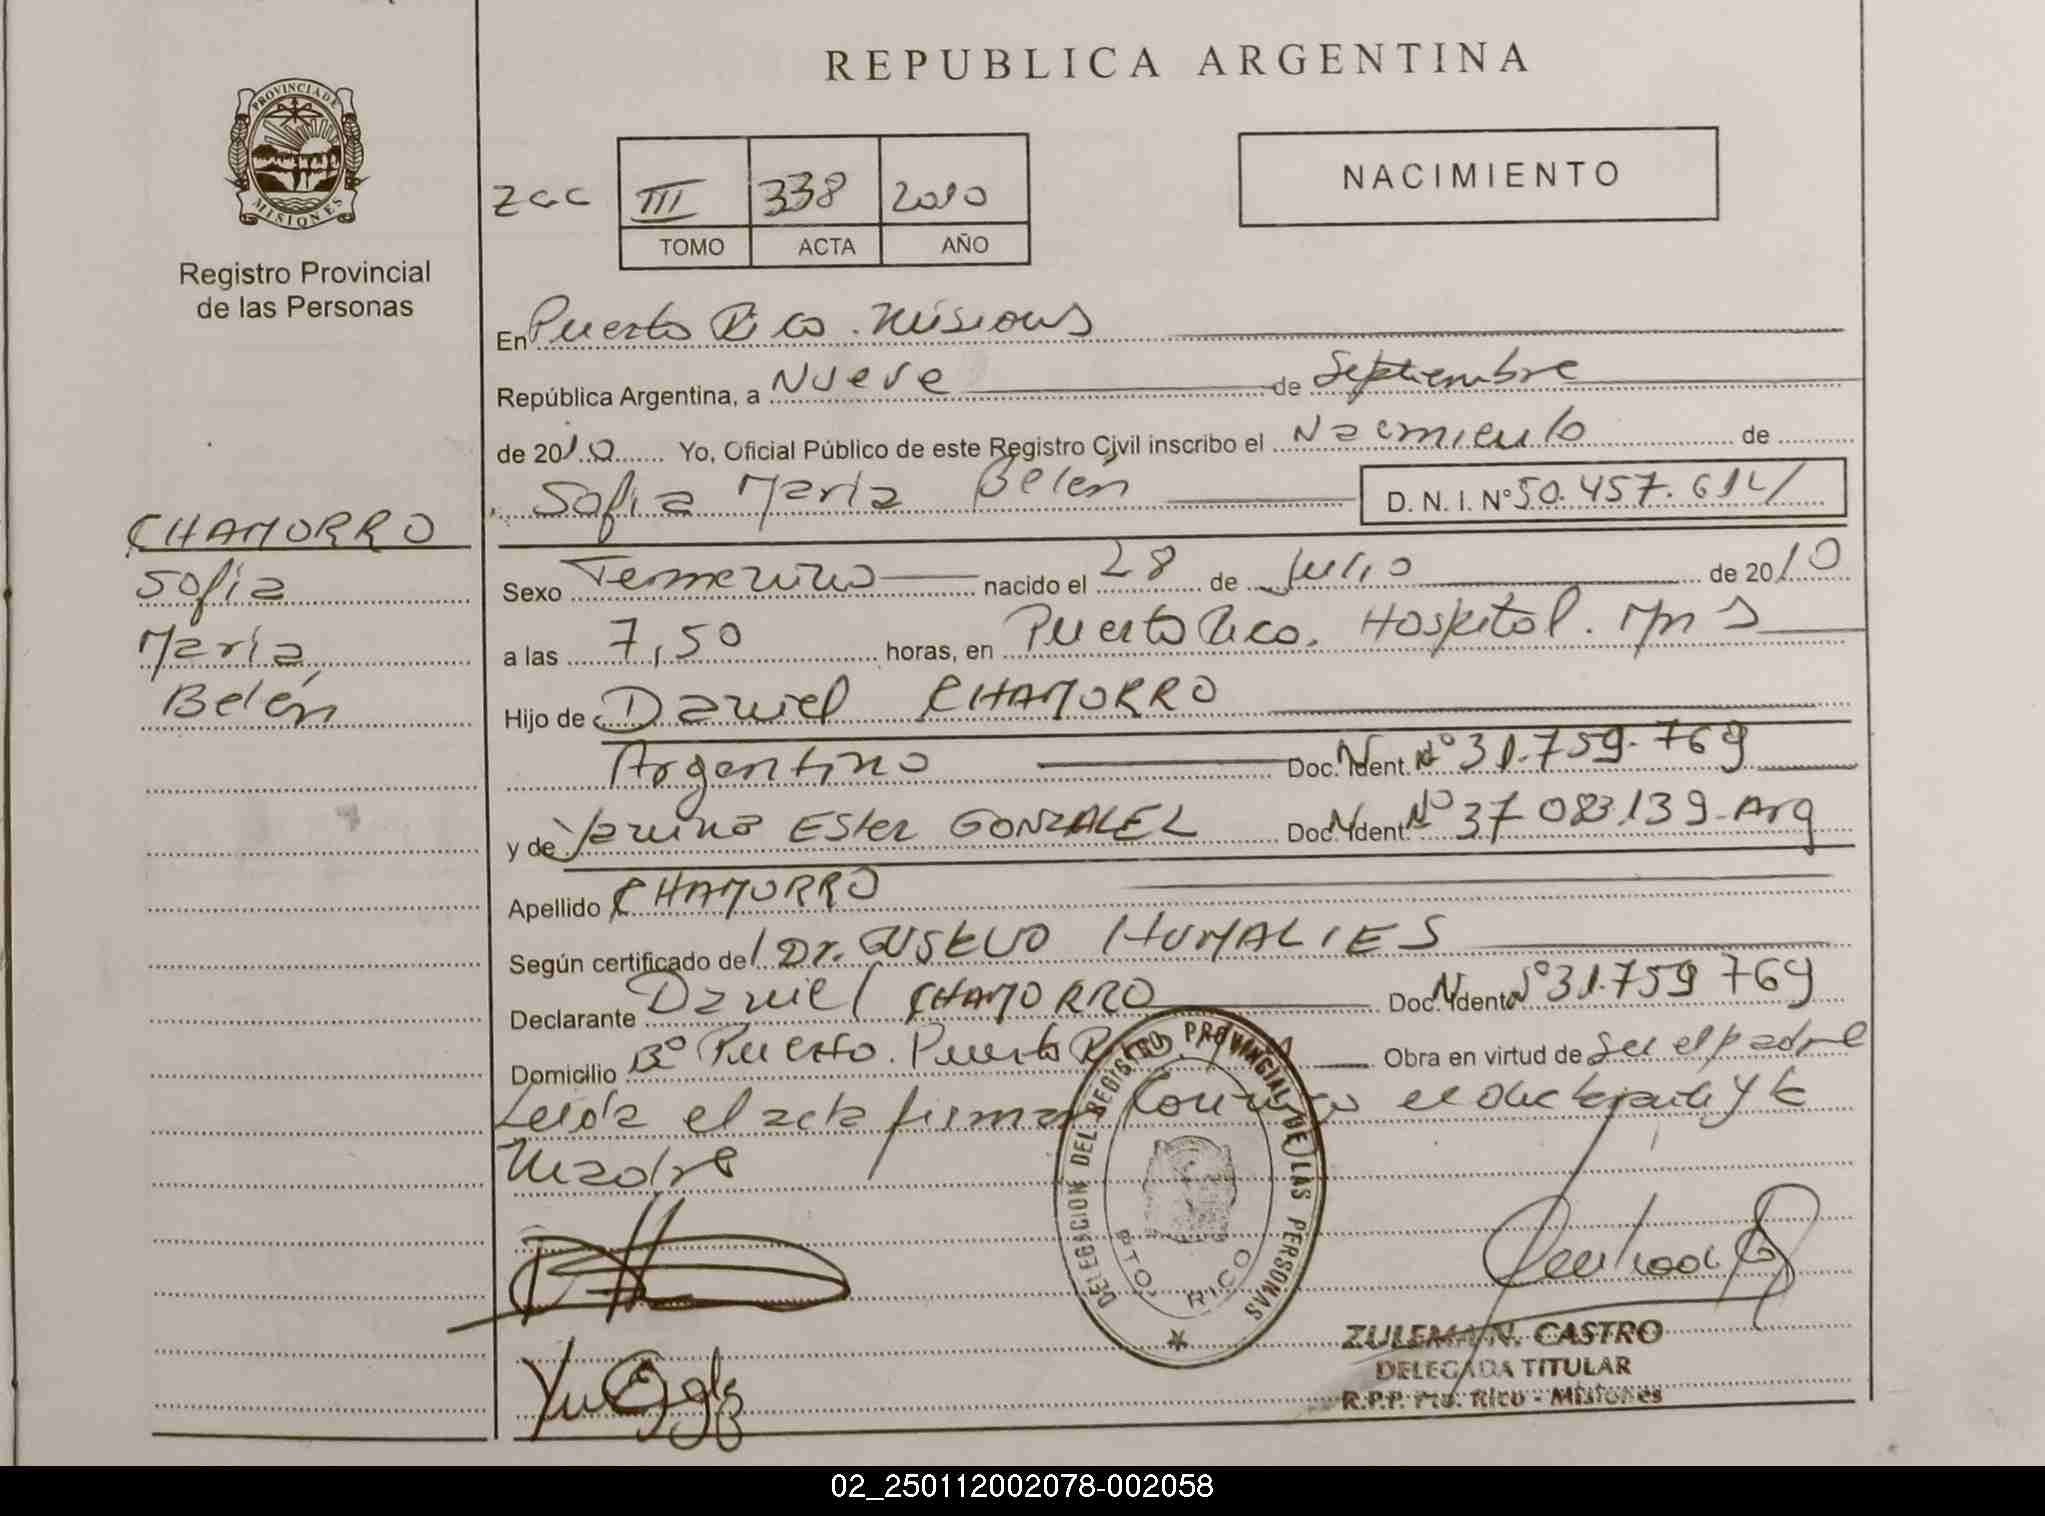 REPUBLICA ARGENTINA
PROVINCIA DE
MISIONES
Registro Provincial
de las Personas
III 338 2010
TOMO ACTA AÑO
NACIMIENTO
En Puerto Rico. Misiones
República Argentina, a Nueve de Septiembre
de 2010 Yo, Oficial Público de este Registro Civil inscribo el Nacimiento de
Sofia María Belén D. N. I. N° 50.457.
CHAMORRO
Sofia
María
Belén
Sexo Femenino nacido el 28 de Julio de 2010
a las 7,50 horas, en Puerto Rico. Hospital. Mns
Hijo de Daniel CHAMORRO
Argentino Doc. Ident. N° 31.759.769
y de Ester GONZALEZ Doc. Ident. N° 37 083.139-Arg
Apellido CHAMORRO
Según certificado del Dr.
Declarante Daniel CHAMORRO Doc. Ident. N° 31.759 769
Domicilio B° Puerto. Puerto Obra en virtud de ser el padre
Leída el acta firman conmigo el declarante y la
Madre
DELEGACION DEL REGISTRO PROVINCIAL DE LAS PERSONAS
PTO. RICO
ZULEMA N. CASTRO
DELEGADA TITULAR
R.P.P. Pto. Rico - Misiones
02_250112002078-002058